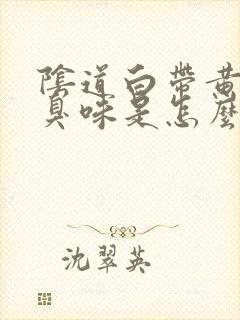 陰道白帶黃
臭味是怎麼
沈翠英